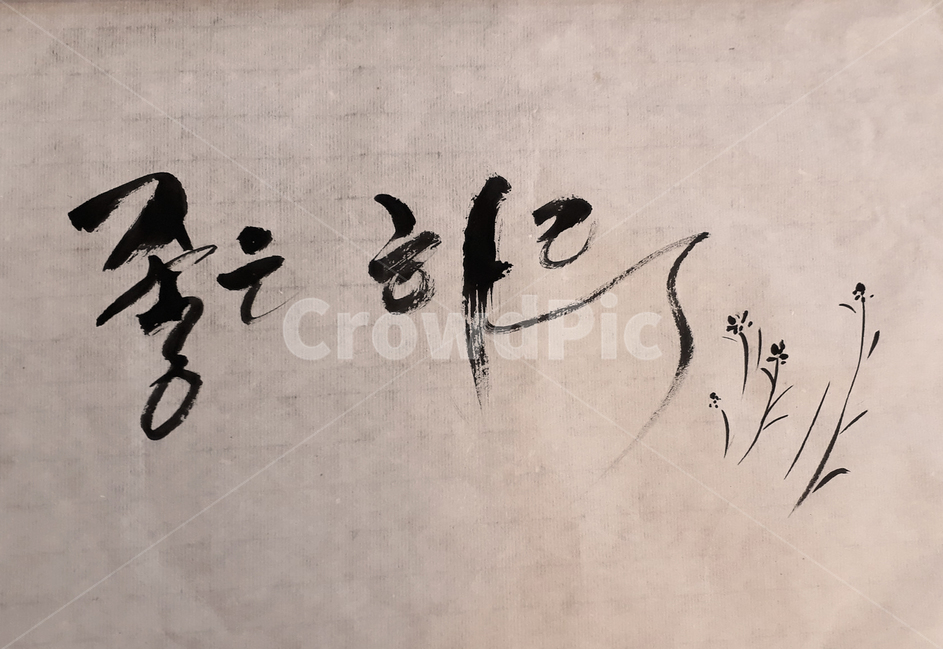 좋은 하루
CrowdPic